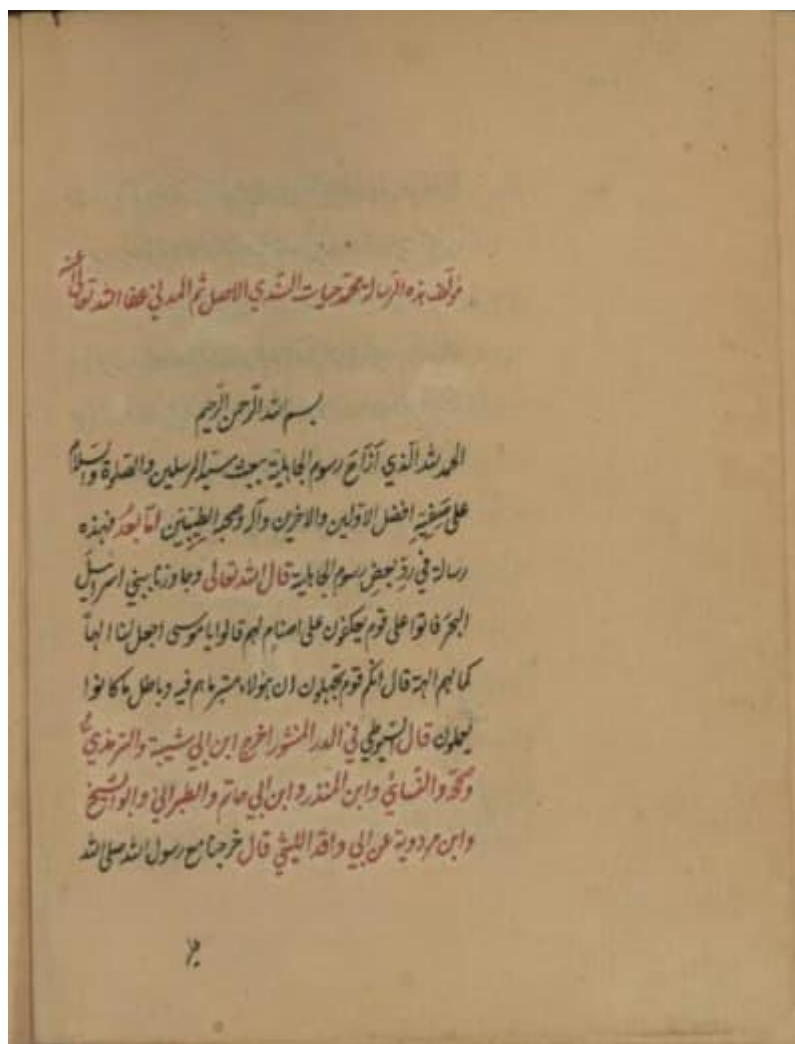 مؤلف هذه الرسالة محمد حيات السندي الاصل ثم المدني عفا الله تعالى عنه
بسم الله الرحمن الرحيم
الحمد لله الذي أزاح رسوم الجاهلية ببعث سيد المرسلين والصلوة والسلام
على صفيه افضل الاولين والاخرين وآله وصحبه الطيبين اما بعد فهذه
رسالة في رد بعض رسوم الجاهلية قال الله تعالى وجاوزنا ببني اسرائيل
البحر فاتوا على قوم يعكفون على اصنام لهم قالوا يا موسى اجعل لنا الها
كما لهم الهة قال انكم قوم تجهلون ان هؤلاء متبر ما هم فيه وباطل ما كانوا
يعملون قال السيوطي في الدر المنثور اخرج ابن ابي شيبة والترمذي
وصححه والنسائي وابن المنذر وابن ابي حاتم والطبراني وابو الشيخ
وابن مردوية عن ابي واقد الليثي قال خرجنا مع رسول الله صلى الله